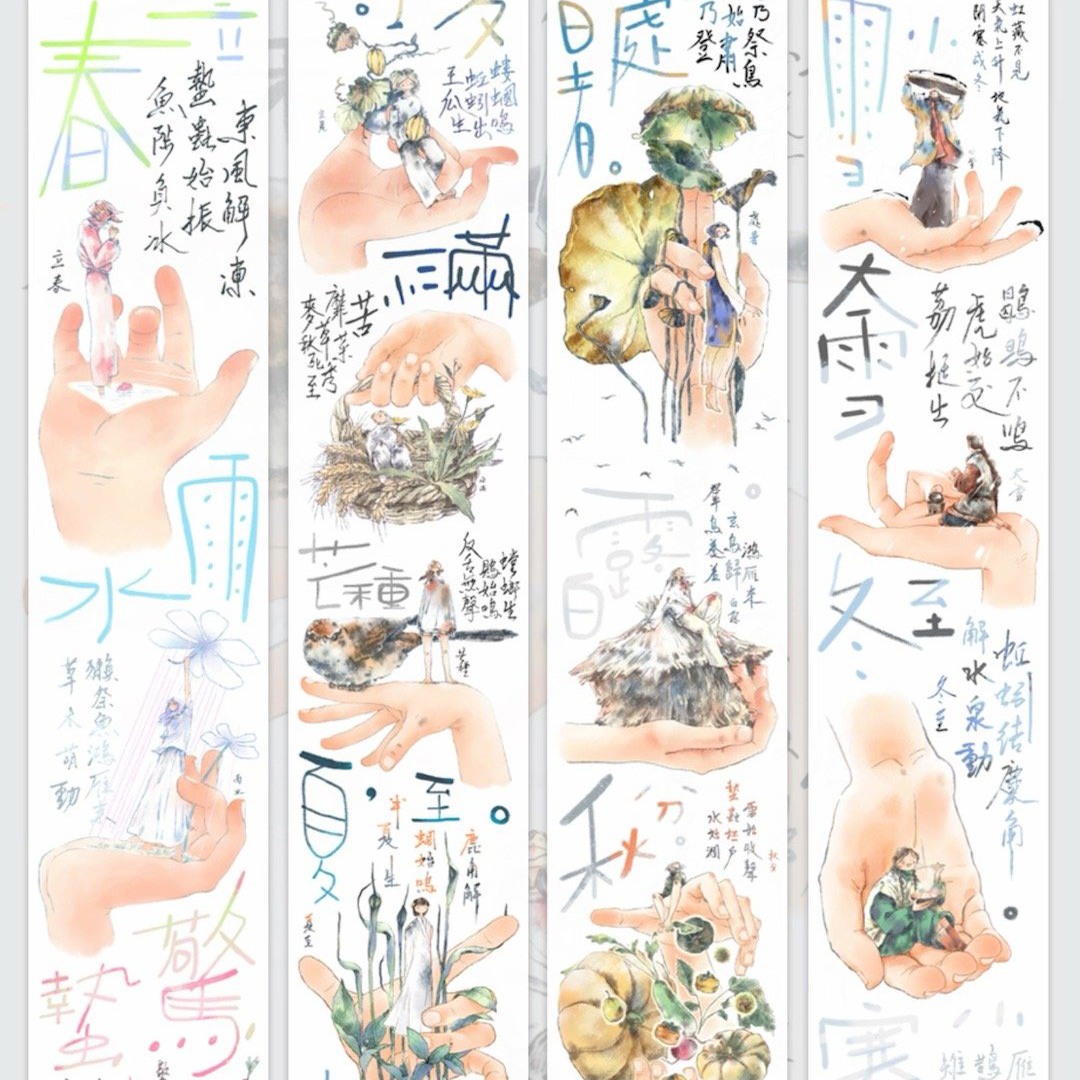 立春
東風解凍
蟄蟲始振
魚陟負冰
立春
雨水
獺祭魚鴻雁來
草木萌動
雨水
驚蟄
夏
螻蟈鳴
蚯蚓出
王瓜生
立夏
小滿
苦菜秀
靡草死
麥秋至
小滿
芒種
螳螂生
鵙始鳴
反舌無聲
芒種
夏至
鹿角解
蜩始鳴
半夏生
夏至
處暑
乃祭鳥
始肅
乃登
處暑
白露
鴻雁來
玄鳥歸
羣鳥養羞
白露
秋分
雷始收聲
蟄蟲坯戶
水始涸
秋分
小雪
虹藏不見
天氣上升 地氣下降
閉塞成冬
大雪
鶡鴠不鳴
虎始交
荔挺出
大雪
冬至
蚯蚓結麋角
解水泉動
冬至
小寒
雁
鵲
雉